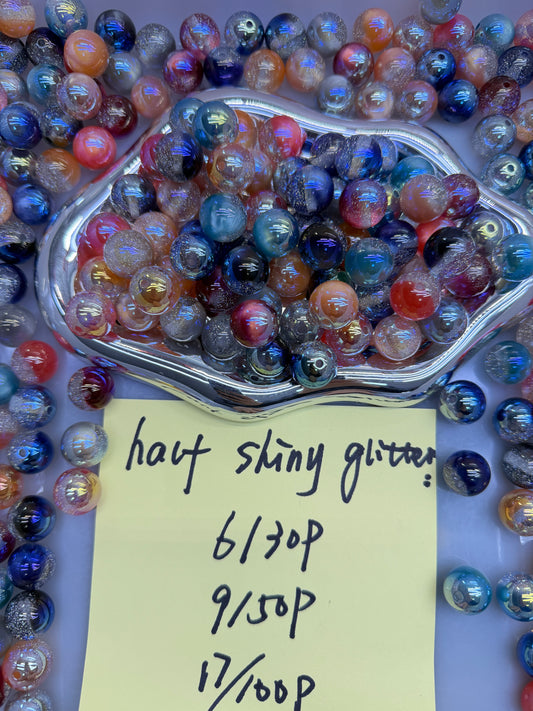 half shiny glitter
6/30P
9/50P
17/100P